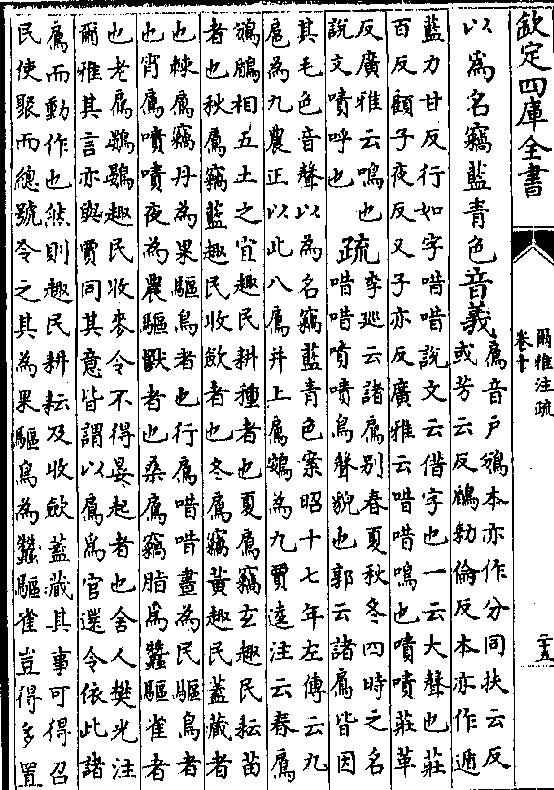 欽定四庫全書
爾雅注疏
卷十
二十五
以為名竊藍青色音義
鳸音户鳻本亦作分同扶云反
或芳云反鶞勑倫反本亦作遁
藍力甘反行如字唶唶說文云借字也一云大聲也莊
百反顧子夜反又子亦反廣雅云唶唶鳴也嘖嘖莊革
反廣雅云鳴也
說文嘖呼也
疏
李廵云諸鳸别春夏秋冬四時之名
唶唶嘖嘖鳥聲貌也郭云諸鳸皆因
其毛色音聲以為名竊藍青色案昭十七年左傳云九
扈為九農正以此八鳸并上鳸鳻為九賈逵注云春鳸
鳻鶞相五土之宜趣民耕種者也夏鳸竊玄趣民耘苗
者也秋鳸竊藍趣民收斂者也冬鳸竊黄趣民蓋藏者
也棘鳸竊丹為果驅鳥者也行鳸唶唶晝為民驅鳥者
也宵鳸嘖嘖夜為農驅獸者也桑鳸竊脂為蠶驅雀者
也老鳸鷃鷃趣民收麥令不得晏起者也舍人樊光注
爾雅其言亦與賈同其意皆謂以鳸為官還令依此諸
鳸而動作也然則趣民耕耘及收斂蓋藏其事可得召
民使聚而總號令之其為果驅鳥為蠶驅雀豈得多置